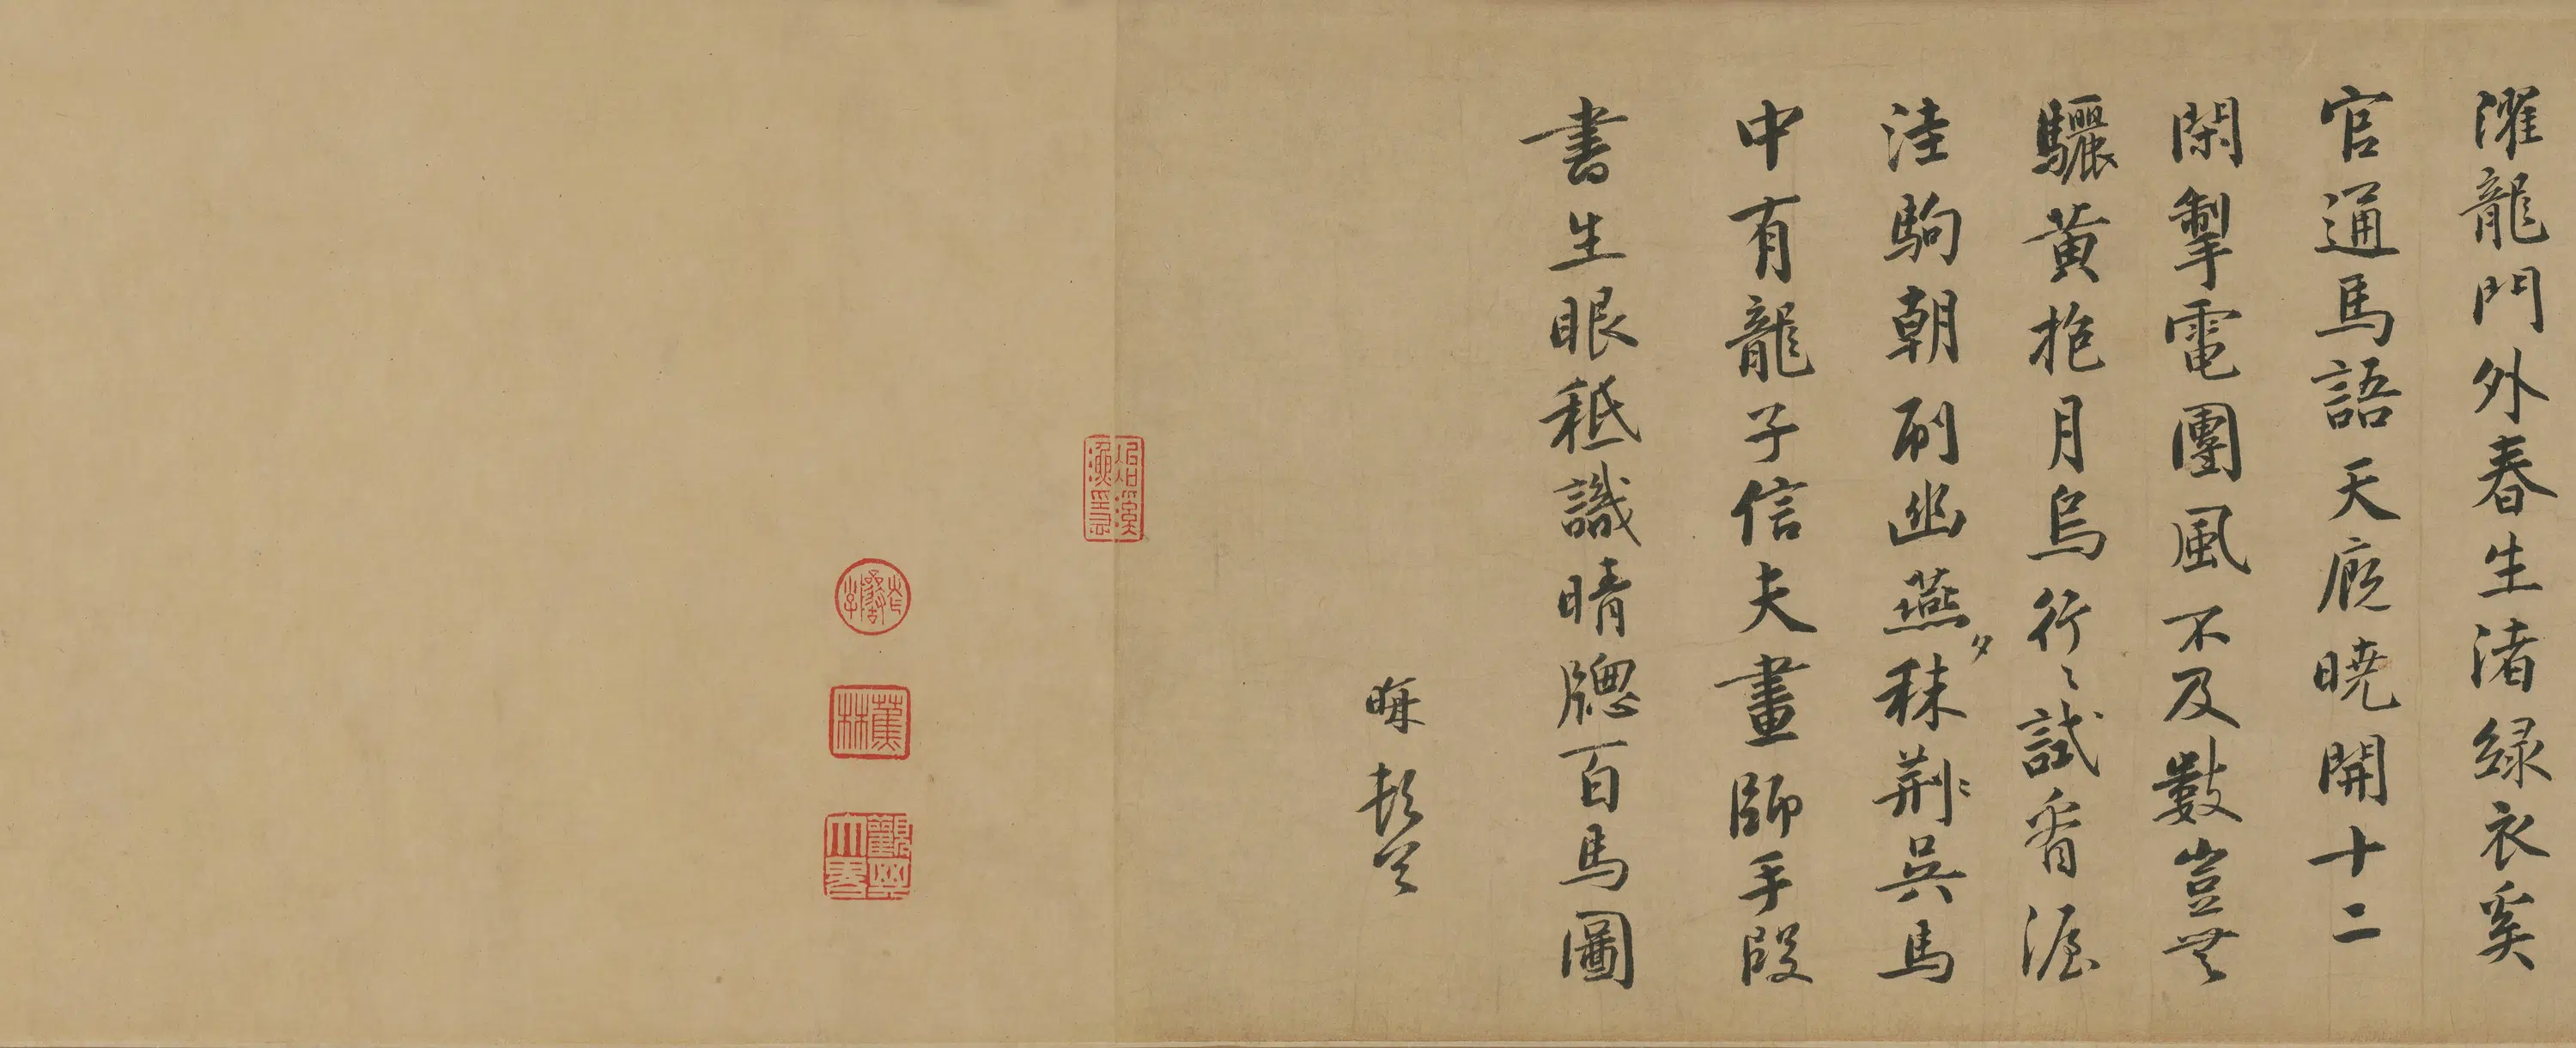 濯龍門外春生渚綠衣奚
官通馬語天廐曉開十二
閑掣電團風不及數豈無
驪黃抱月烏行〻試看渥
洼駒朝刷幽燕夕秣荆吳馬
中有龍子信夫畫師手段
書生眼秪識晴牕百馬圖
晦
蕉林
觀其大略